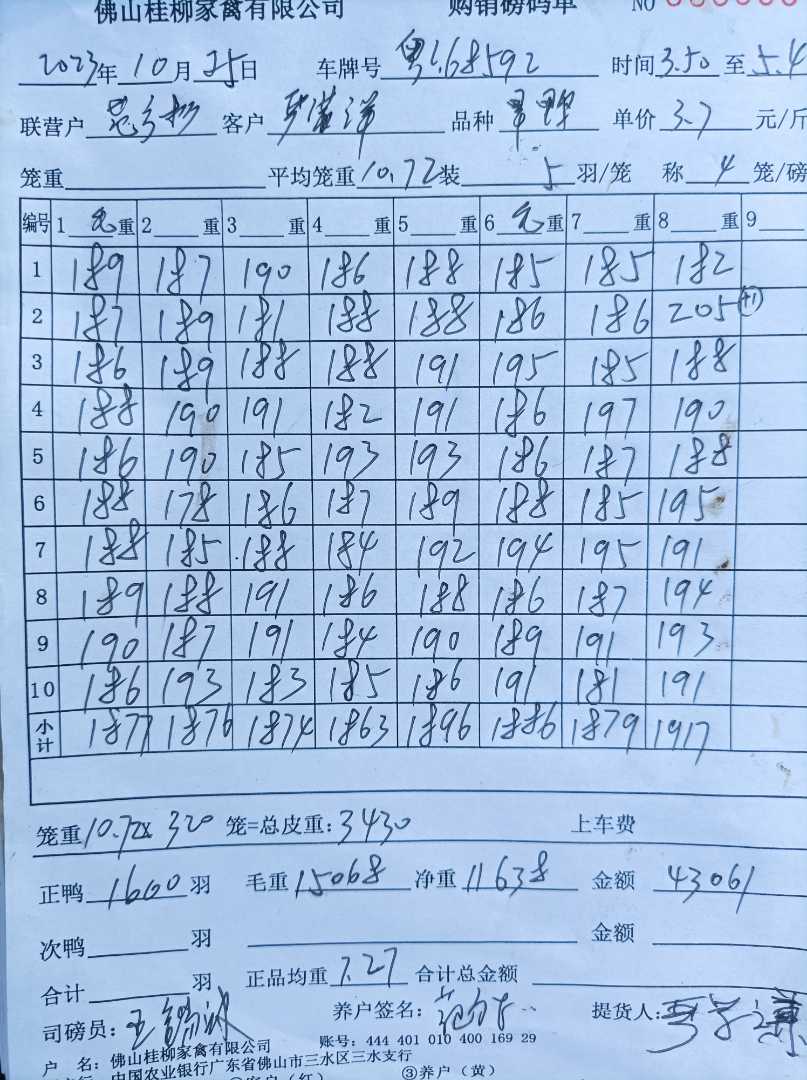 佛山桂柳家禽有限公司 购销磅码单 NO
2023年10月25日 车牌号 粤L68592 时间3.50至5.4
联营户 客户 品种 单价3.7元/斤
笼重 平均笼重10.72装5羽/笼 称4笼/磅
编号 1 重 2 重 3 重 4 重 5 重 6 重 7 重 8 重 9
1 189 187 190 186 188 185 185 182
2 187 189 181 188 188 186 186 205 +1
3 186 189 188 188 191 195 185 188
4 188 190 191 182 191 186 197 190
5 186 190 185 193 193 186 187 188
6 188 178 186 187 189 188 185 195
7 188 185 188 184 192 194 195 191
8 189 188 191 186 188 186 187 194
9 190 187 191 184 190 189 191 193
10 186 193 183 185 186 191 181 191
小计 1877 1876 1874 1863 1896 1886 1879 1917
笼重10.72x320笼=总皮重:3430 上车费
正鸭1600羽 毛重15068 净重11638 金额 43061
次鸭 羽 金额
合计 羽 正品均重7.27 合计总金额
司磅员: 养户签名: 提货人:
户 名: 佛山桂柳家禽有限公司 账号: 444 401 010 400 169 29
中国农业银行广东省佛山市三水区三水支行
②客户(红) ③养户(黄)